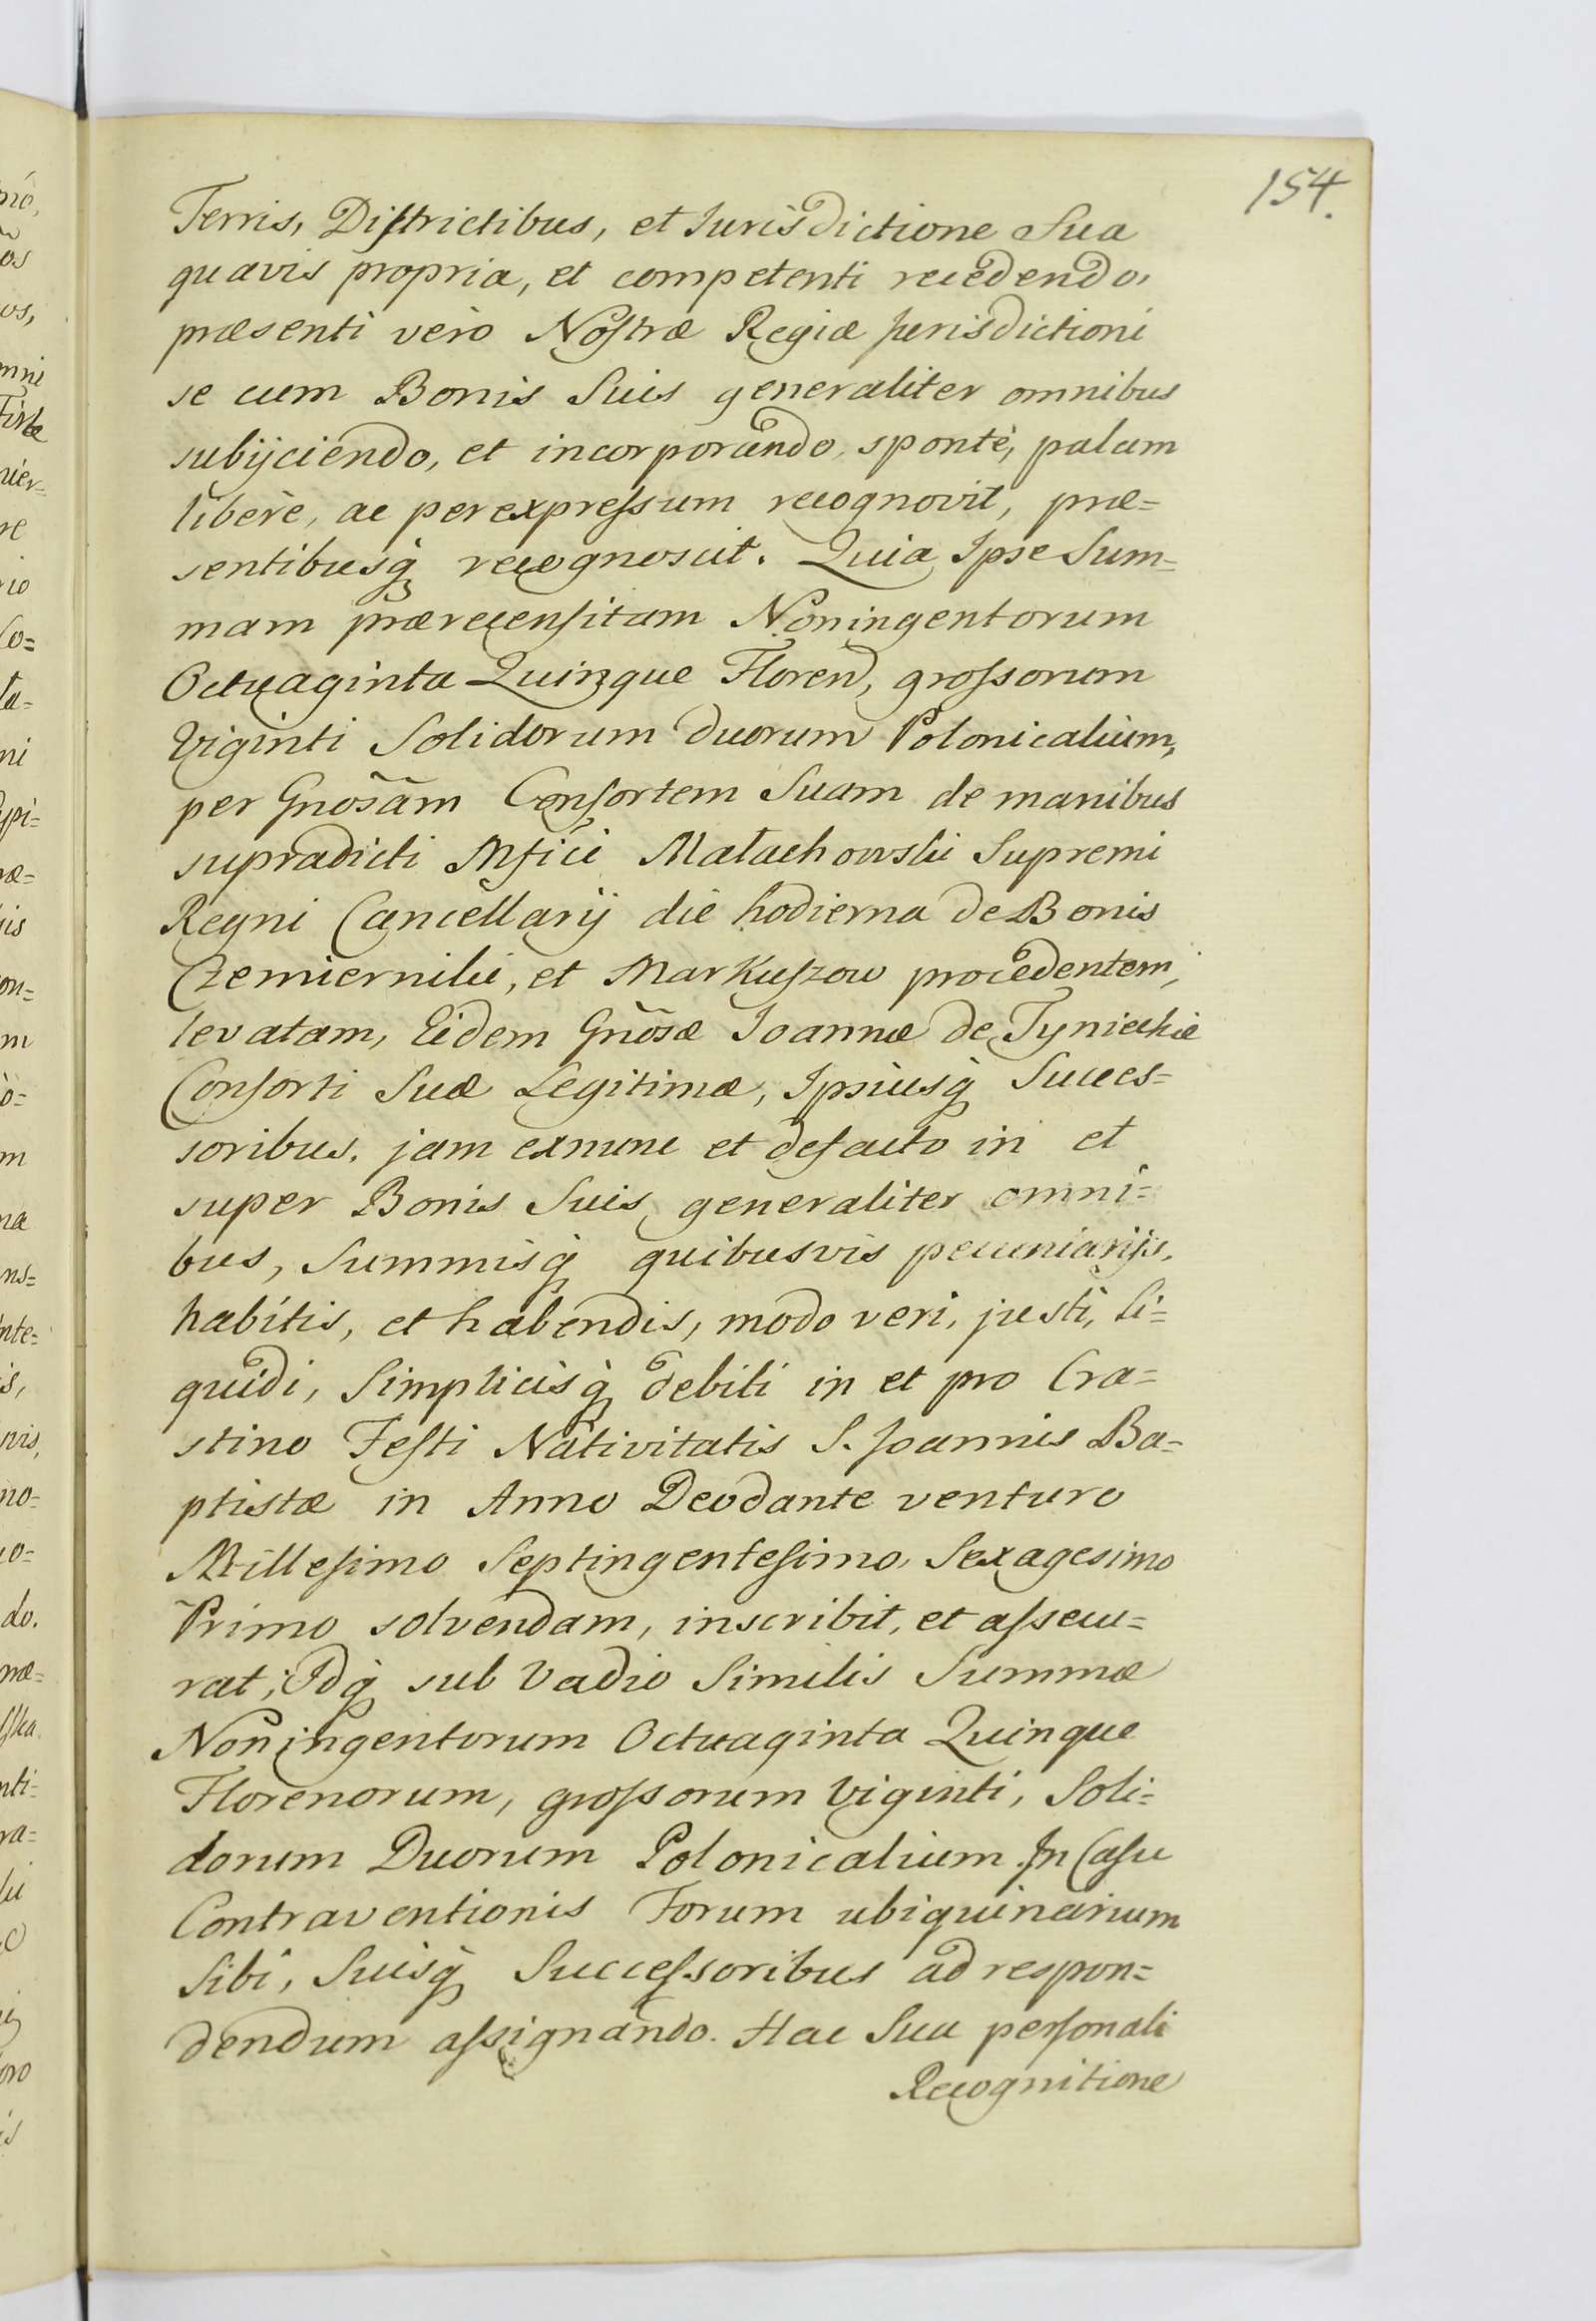 154.
Terris, Districtibus, et Jurisdictione Sua
quavis propria, et competenti recedendo,
præsenti verò Nostræ Regiæ Jurisdictioni
se cum Bonis Suis generaliter omnibus
subijciendo, et incorporando, spontè, palam
liberè, ac per expressum recognovit, præ=
sentibusq̀ recognoscit. Quia Ipse Sum=
mam prærecensitam Noningentorum
Octuaginta Quinque Floren, grossorum
Viginti Solidorum duorum Polonicalium,
per Gnosam Consortem Suam de manibus
supradicti Mfici Małachowski Supremi
Regni Cancellarij die hodierna de Bonis
Czemierniki, et Markuszow procedentem,
levatam, Eidem Gnosæ Joannæ de Tynieckie
Consorti Suæ Legitimæ, Ipsiusq̀ Succes=
soribus, jam exnunc et defacto in et
super Bonis Suis generaliter omni=
bus, Summisq̀ quibusvis pecuniarijs,
habitis, et habendis, modo veri, justi, li=
quidi, Simplicisq̀ debiti in et pro Cra=
stino Festi Nativitatis S. Joannis Ba=
ptistæ in Anno Deodante venturo
Millesimo Septingentesimo, Sexagesimo
Primo solvendam, inscribit, et assecu=
rat; Idq̀ sub Vadio Similis Summæ
Noningentorum Octuaginta Quinque
Florenorum, grossorum Viginti, Soli=
dorum Duorum Polonicalium. In Casu
Contraventionis Forum ubiquinarium
Sibi, Suisq̀ Successoribus ad respon=
dendum assignando. Hac Sua personali
Recognitione